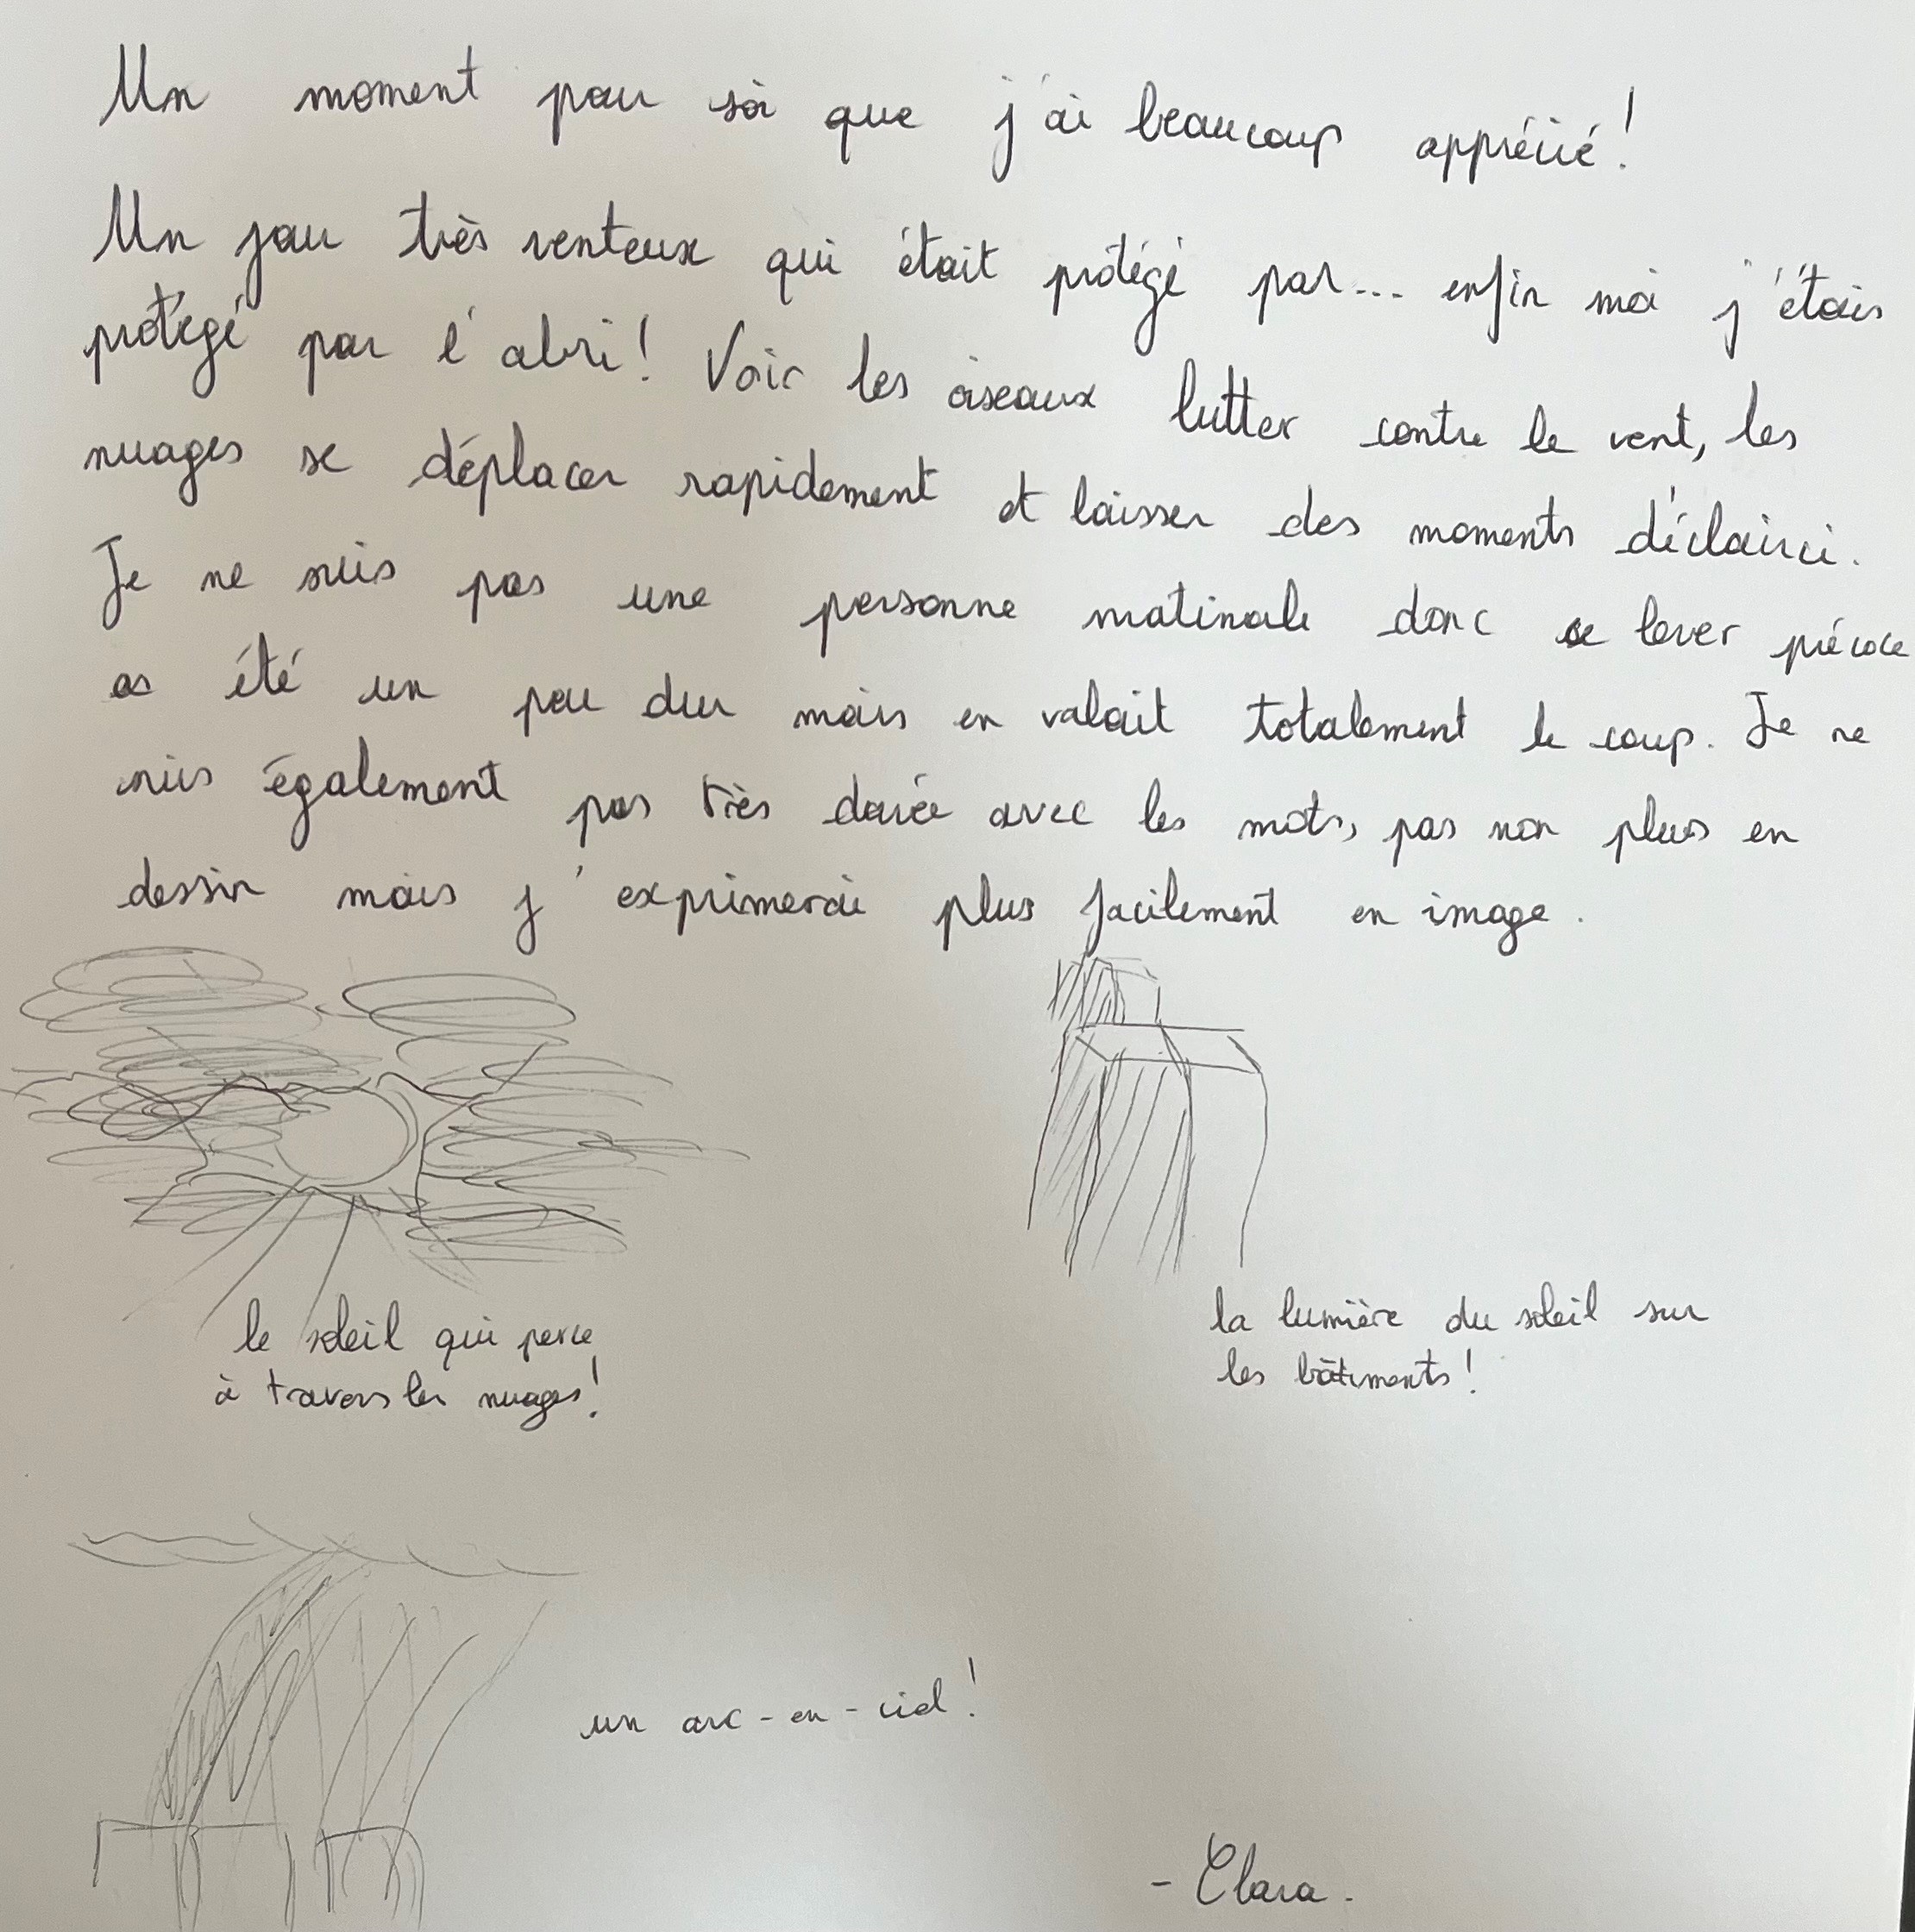 Un moment pour soi que j'ai beaucoup apprécié!
Un jour très venteux qui était protégé par... enfin moi j'étais
protégé par l'abri! Voir les oiseaux lutter contre le vent, les
nuages se déplacer rapidement et laisser des moments d'éclairci.
Je ne suis pas une personne matinale donc se lever précoce
as été un peu dur mais en valait totalement le coup. Je ne
suis également pas très douée avec les mots, pas non plus en
dessin mais j'exprimerai plus facilement en image.
le soleil qui perce
à travers les nuages!
la lumière du soleil sur
les bâtiments!
un arc-en-ciel!
- Clara.